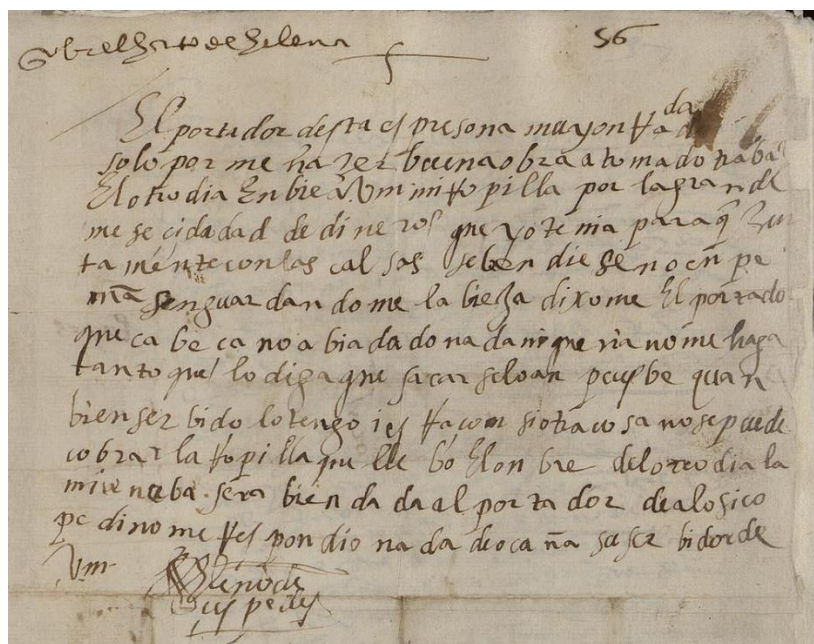 sobre el harto de helena 56
El portador desta es presona muy onRada
solo por me hazer buena obra a tomado traba
El otro dia Enbie a Vm mi Ropilla por la grande
nesecidad de dineros que yo tenia para q Jun
ta mente con las calsas se bendiese no en pe
ña sen guardando me la bieJa dixome El portador
que cabeca no abia dado nada ni queria no me haga
tanto que lo diga que sacar selo an pues be quan
bien serbido lo tengo i esta con si otra cosa no se puede
cobrar la Ropilla que llebo El onbre del otro dia la
mia nueba sera bien dada al portador dealosico
pedi no me Respondio nada de ocaña su serbidor de
Vm
cespedes